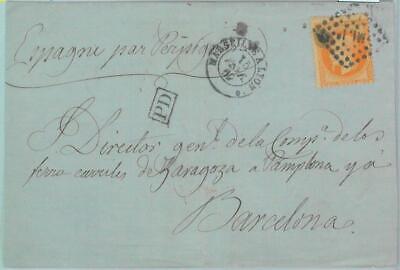 Espagne par Perpignan
MARSEILLE A LYON
15
PD
S. Director genl. de la Compa. de los
ferro carriles de Zaragoza a Pamplona y á
Barcelona.